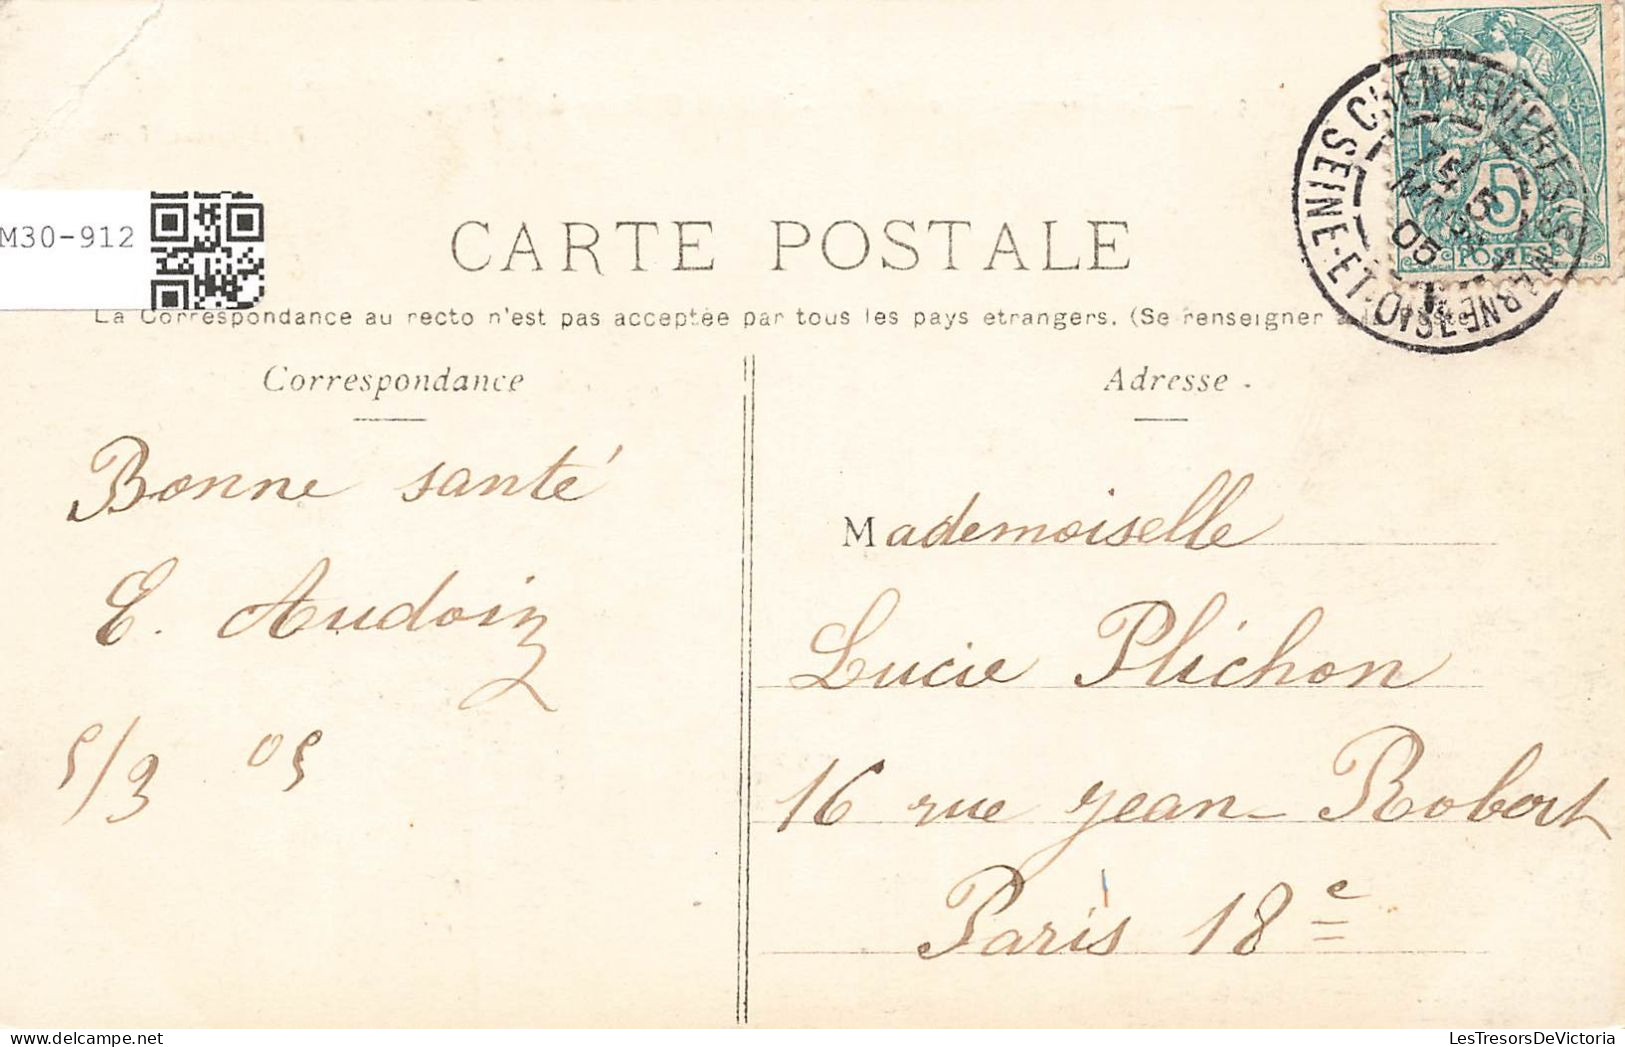 M30-912
CARTE POSTALE
La Correspondance au recto n'est pas acceptée par tous les pays etrangers. (Se renseigner
CHENNEVIERES-S-MARNE
SEINE-ET-OISE
5
MARS
05
5
POSTES
Correspondance
Adresse
Bonne santé
E. Audoin
5/3 05
Mademoiselle
Lucie Plichon
16 rue Jean-Robert
Paris 18e
LesTresorsDeVictoria